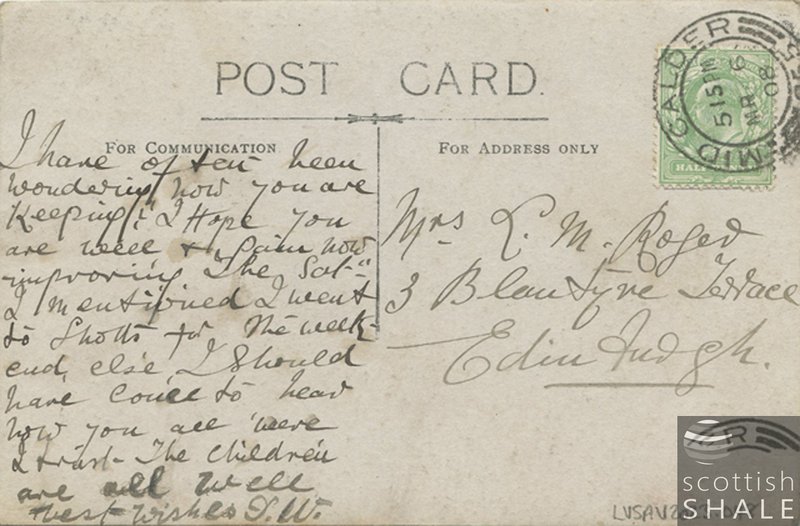 POST CARD.
FOR COMMUNICATION
FOR ADDRESS ONLY
I have often been
wondering how you are
keeping. I Hope you
are well & Pain now
improving The Sat.
I mentioned I went
to Shotts for the week-
end, else I should
have come to hear
how you all were
I trust The Children
are all well
best wishes
Mrs L. M. Roger
3 Blantyre Terrace
Edinburgh.
MID CALDER
5 15 PM
MR 6
08
HALFPENNY
scottish
SHALE